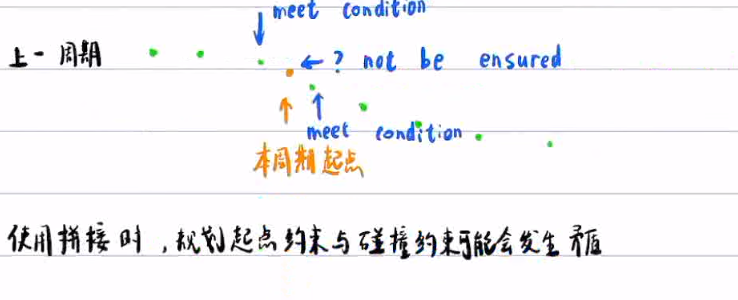 meet condition
上一周期
? not be ensured
meet condition
本周期起点
使用拼接时,规划起点约束与碰撞约束可能会发生矛盾